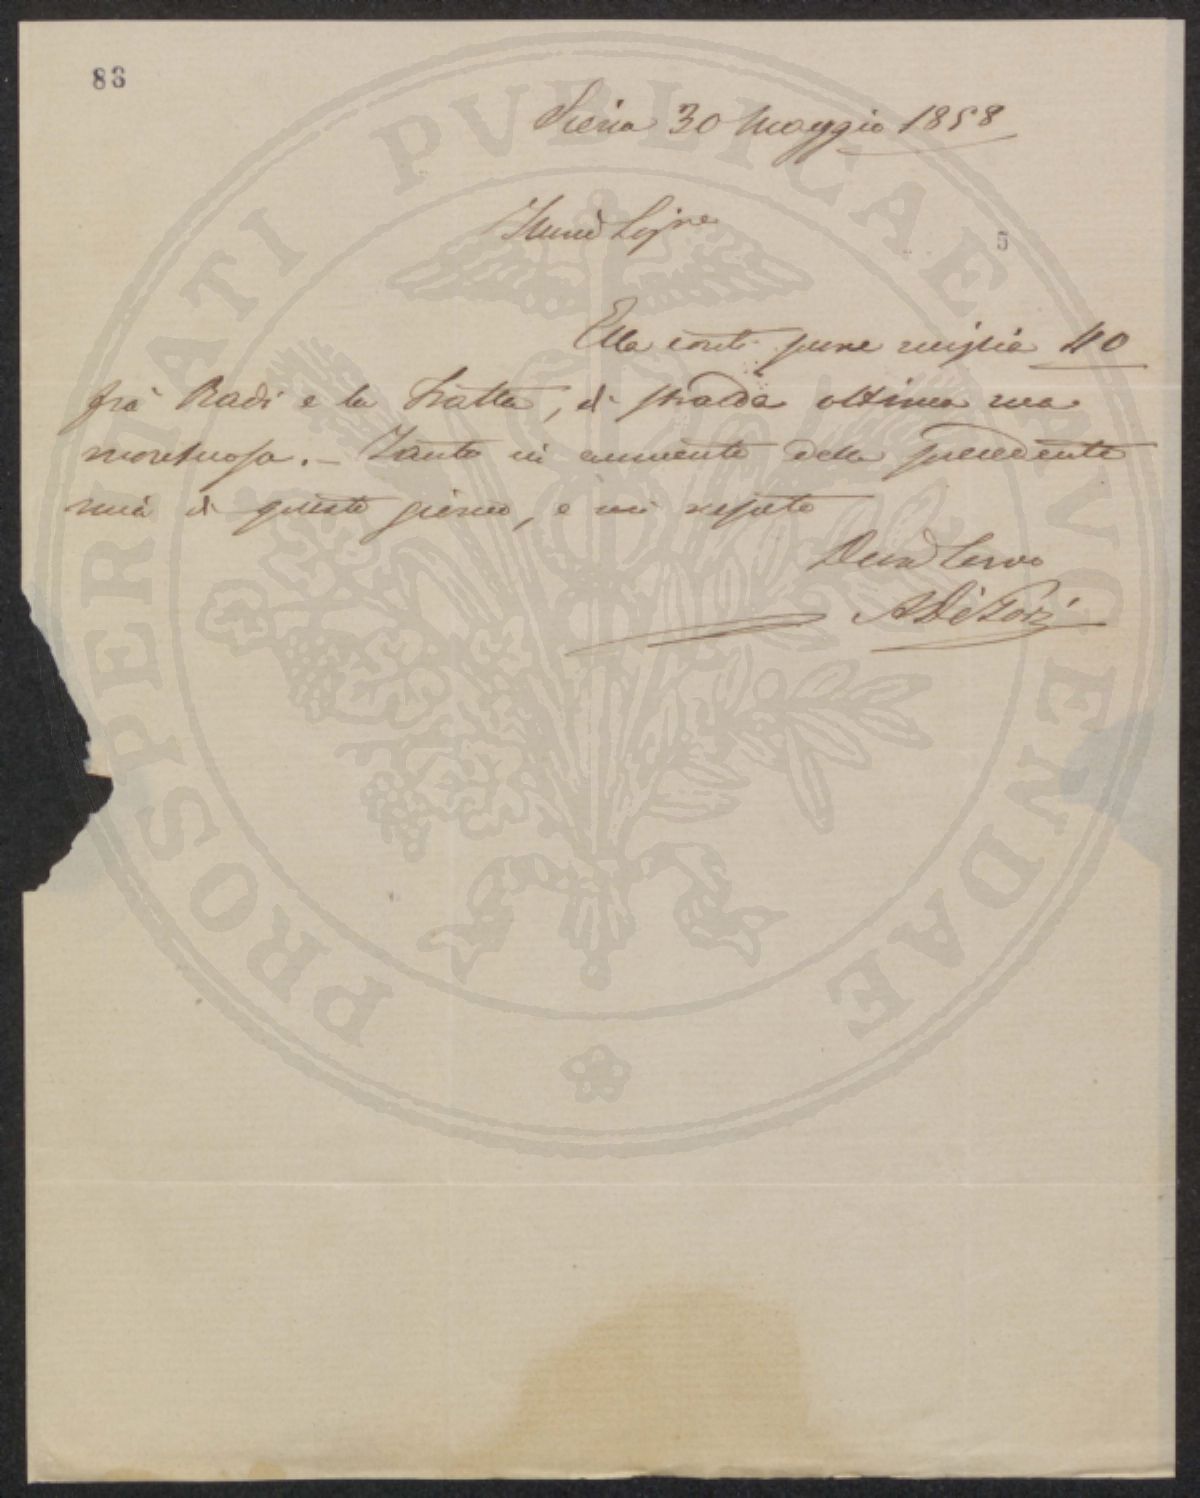 86
Siena 30 Maggio 1858
5
Ella conti pure miglia 40
frà Radi e la Fratta, di strada ottima ma
montuosa. – Tanto in aumento della precedente
mia di questo giorno, e mi reputo
Servo
PROSPERITATI PVBLICAE AVGENDAE